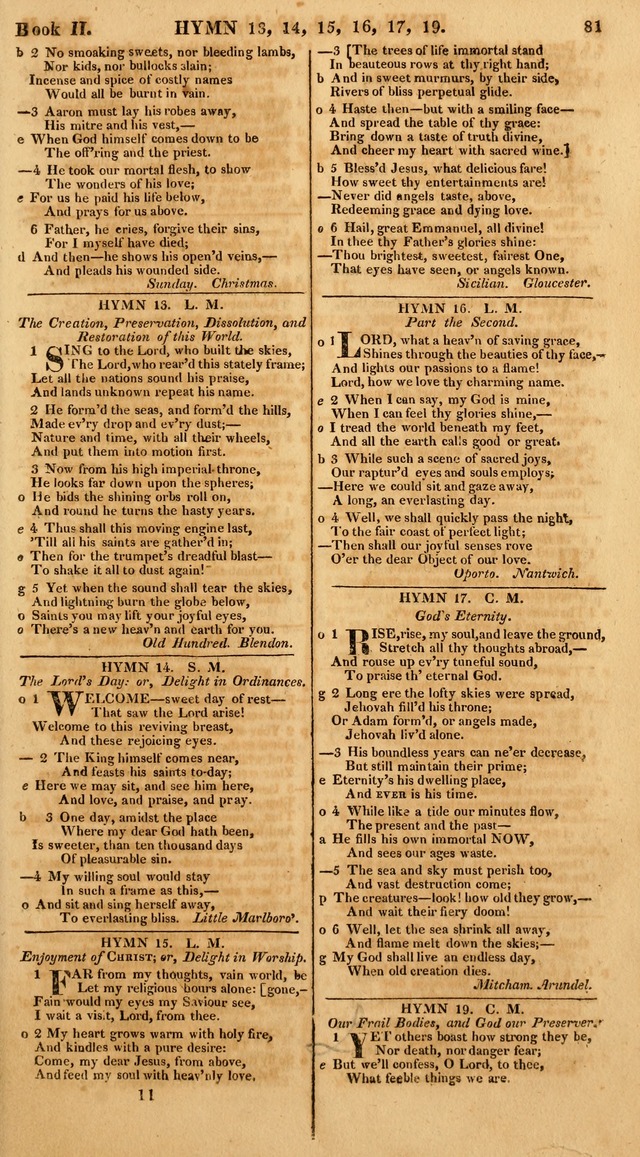 Book II. HYMN 13, 14, 15, 16, 17, 19. 81
b 2 No smoaking sweets, nor bleeding lambs,
Nor kids, nor bullocks slain;
Incense and spice of costly names
Would all be burnt in vain.
—3 Aaron must lay his robes away,
His mitre and his vest,—
e When God himself comes down to be
The off'ring and the priest.
—4 He took our mortal flesh, to show
The wonders of his love;
e For us he paid his life below,
And prays for us above.
6 Father, he cries, forgive their sins,
For I myself have died;
d And then—he shows his open'd veins,—
And pleads his wounded side.
Sunday. Christmas.
HYMN 13. L. M.
The Creation, Preservation, Dissolution, and
Restoration of this World.
1 SING to the Lord, who built the skies,
The Lord, who rear'd this stately frame;
Let all the nations sound his praise,
And lands unknown repeat his name.
2 He form'd the seas, and form'd the hills,
Made ev'ry drop and ev'ry dust;—
Nature and time, with all their wheels,
And put them into motion first.
3 Now from his high imperial throne,
He looks far down upon the spheres;
o He bids the shining orbs roll on,
And round he turns the hasty years.
e 4 Thus shall this moving engine last,
'Till all his saints are gather'd in;
o Then for the trumpet's dreadful blast—
To shake it all to dust again!
g 5 Yet when the sound shall tear the skies,
And lightning burn the globe below,
o Saints you may lift your joyful eyes,
o There's a new heav'n and earth for you.
Old Hundred. Blendon.
HYMN 14. S. M.
The Lord's Day: or, Delight in Ordinances.
o 1 WELCOME—sweet day of rest—
That saw the Lord arise!
Welcome to this reviving breast,
And these rejoicing eyes.
— 2 The King himself comes near,
And feasts his saints to-day;
e Here we may sit, and see him here,
And love, and praise, and pray.
b 3 One day, amidst the place
Where my dear God hath been,
Is sweeter, than ten thousand days
Of pleasurable sin.
—4 My willing soul would stay
In such a frame as this,—
o And sit and sing herself away,
To everlasting bliss. Little Marlboro'.
HYMN 15. L. M.
Enjoyment of CHRIST; or, Delight in Worship.
1 FAR from my thoughts, vain world, be
Let my religious hours alone: [gone,—
Fain would my eyes my Saviour see,
I wait a visit, Lord, from thee.
o 2 My heart grows warm with holy fire,
And kindles with a pure desire:
Come, my dear Jesus, from above,
And feed my soul with heav'nly love,
11
—3 [The trees of life immortal stand
In beauteous rows at thy right hand;
b And in sweet murmurs, by their side,
Rivers of bliss perpetual glide.
o 4 Haste then—but with a smiling face—
And spread the table of thy grace:
Bring down a taste of truth divine,
And cheer my heart with sacred wine.]
b 5 Bless'd Jesus, what delicious fare!
How sweet thy entertainments are!
—Never did angels taste, above,
Redeeming grace and dying love.
o 6 Hail, great Emmanuel, all divine!
In thee thy Father's glories shine:
—Thou brightest, sweetest, fairest One,
That eyes have seen, or angels known.
Sicilian. Gloucester.
HYMN 16. L. M.
Part the Second.
o 1 LORD, what a heav'n of saving grace,
Shines through the beauties of thy face,—
And lights our passions to a flame!
Lord, how we love thy charming name.
e 2 When I can say, my God is mine,
When I can feel thy glories shine,—
o I tread the world beneath my feet,
And all the earth calls good or great.
b 3 While such a scene of sacred joys,
Our raptur'd eyes and souls employs;
—Here we could sit and gaze away,
A long, an everlasting day.
o 4 Well, we shall quickly pass the night,
To the fair coast of perfect light;
—Then shall our joyful senses rove
O'er the dear Object of our love.
Oporto. Nantwich.
HYMN 17. C. M.
God's Eternity.
o 1 RISE, rise, my soul, and leave the ground,
Stretch all thy thoughts abroad,—
And rouse up ev'ry tuneful sound,
To praise th' eternal God.
g 2 Long ere the lofty skies were spread,
Jehovah fill'd his throne;
Or Adam form'd, or angels made,
Jehovah liv'd alone.
—3 His boundless years can ne'er decrease,
But still maintain their prime;
e Eternity's his dwelling place,
And EVER is his time.
o 4 While like a tide our minutes flow,
The present and the past—
a He fills his own immortal NOW,
And sees our ages waste.
—5 The sea and sky must perish too,
And vast destruction come;
p The creatures—look! how old they grow,—
And wait their fiery doom!
o 6 Well, let the sea shrink all away,
And flame melt down the skies;—
g My God shall live an endless day,
When old creation dies.
Mitcham. Arundel.
HYMN 19. C. M.
Our Frail Bodies, and God our Preserver.
1 YET others boast how strong they be,
Nor death, nor danger fear;
e But we'll confess, O Lord, to thee,
What feeble things we are.